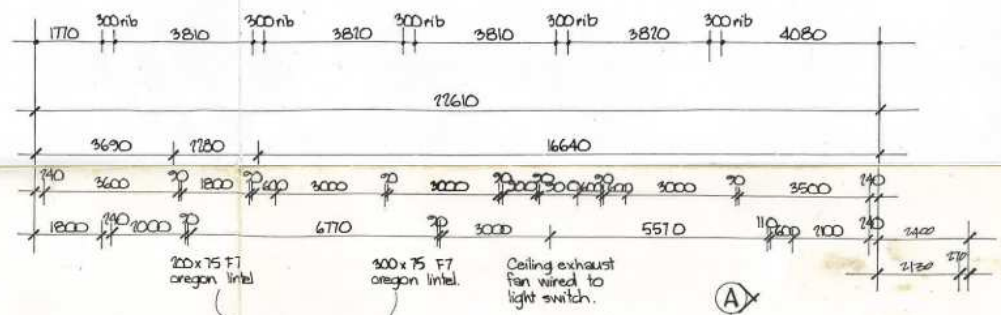 300 rib 300 rib 300 rib 300 rib 300 rib
1770 3810 3820 3810 3820 4080
22610
3690 2280 16640
240 3600 90 1800 90 600 3000 90 3000 90 300 90 300 600 90 3000 90 3500 240
1800 240 2000 90 6770 90 3000 5570 110 600 2100 240 2400
2130 270
200 x 75 F7
oregon lintel
300 x 75 F7
oregon lintel.
Ceiling exhaust
fan wired to
light switch.
A